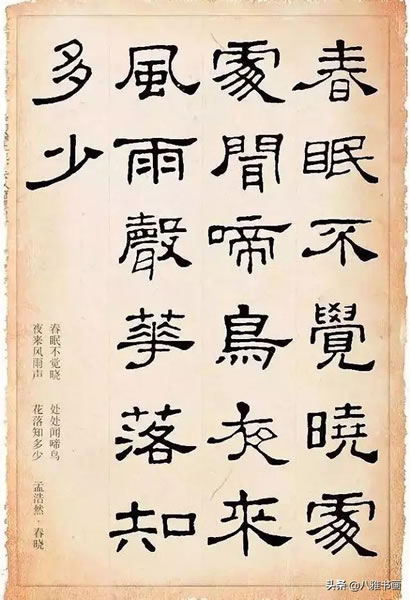 春眠不覺曉處
處聞啼鳥夜來
風雨聲華落知
多少
春眠不觉晓 处处闻啼鸟
夜来风雨声 花落知多少 孟浩然·春晓
头条 @八雅书画